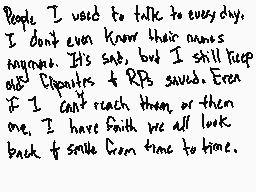 People I used to talk to every day.
I don't even know their names
anymore. It's sad, but I still keep
old Flipnotes & RPs saved. Even
if I can't reach them, or them
me, I have faith we all look
back & smile from time to time.